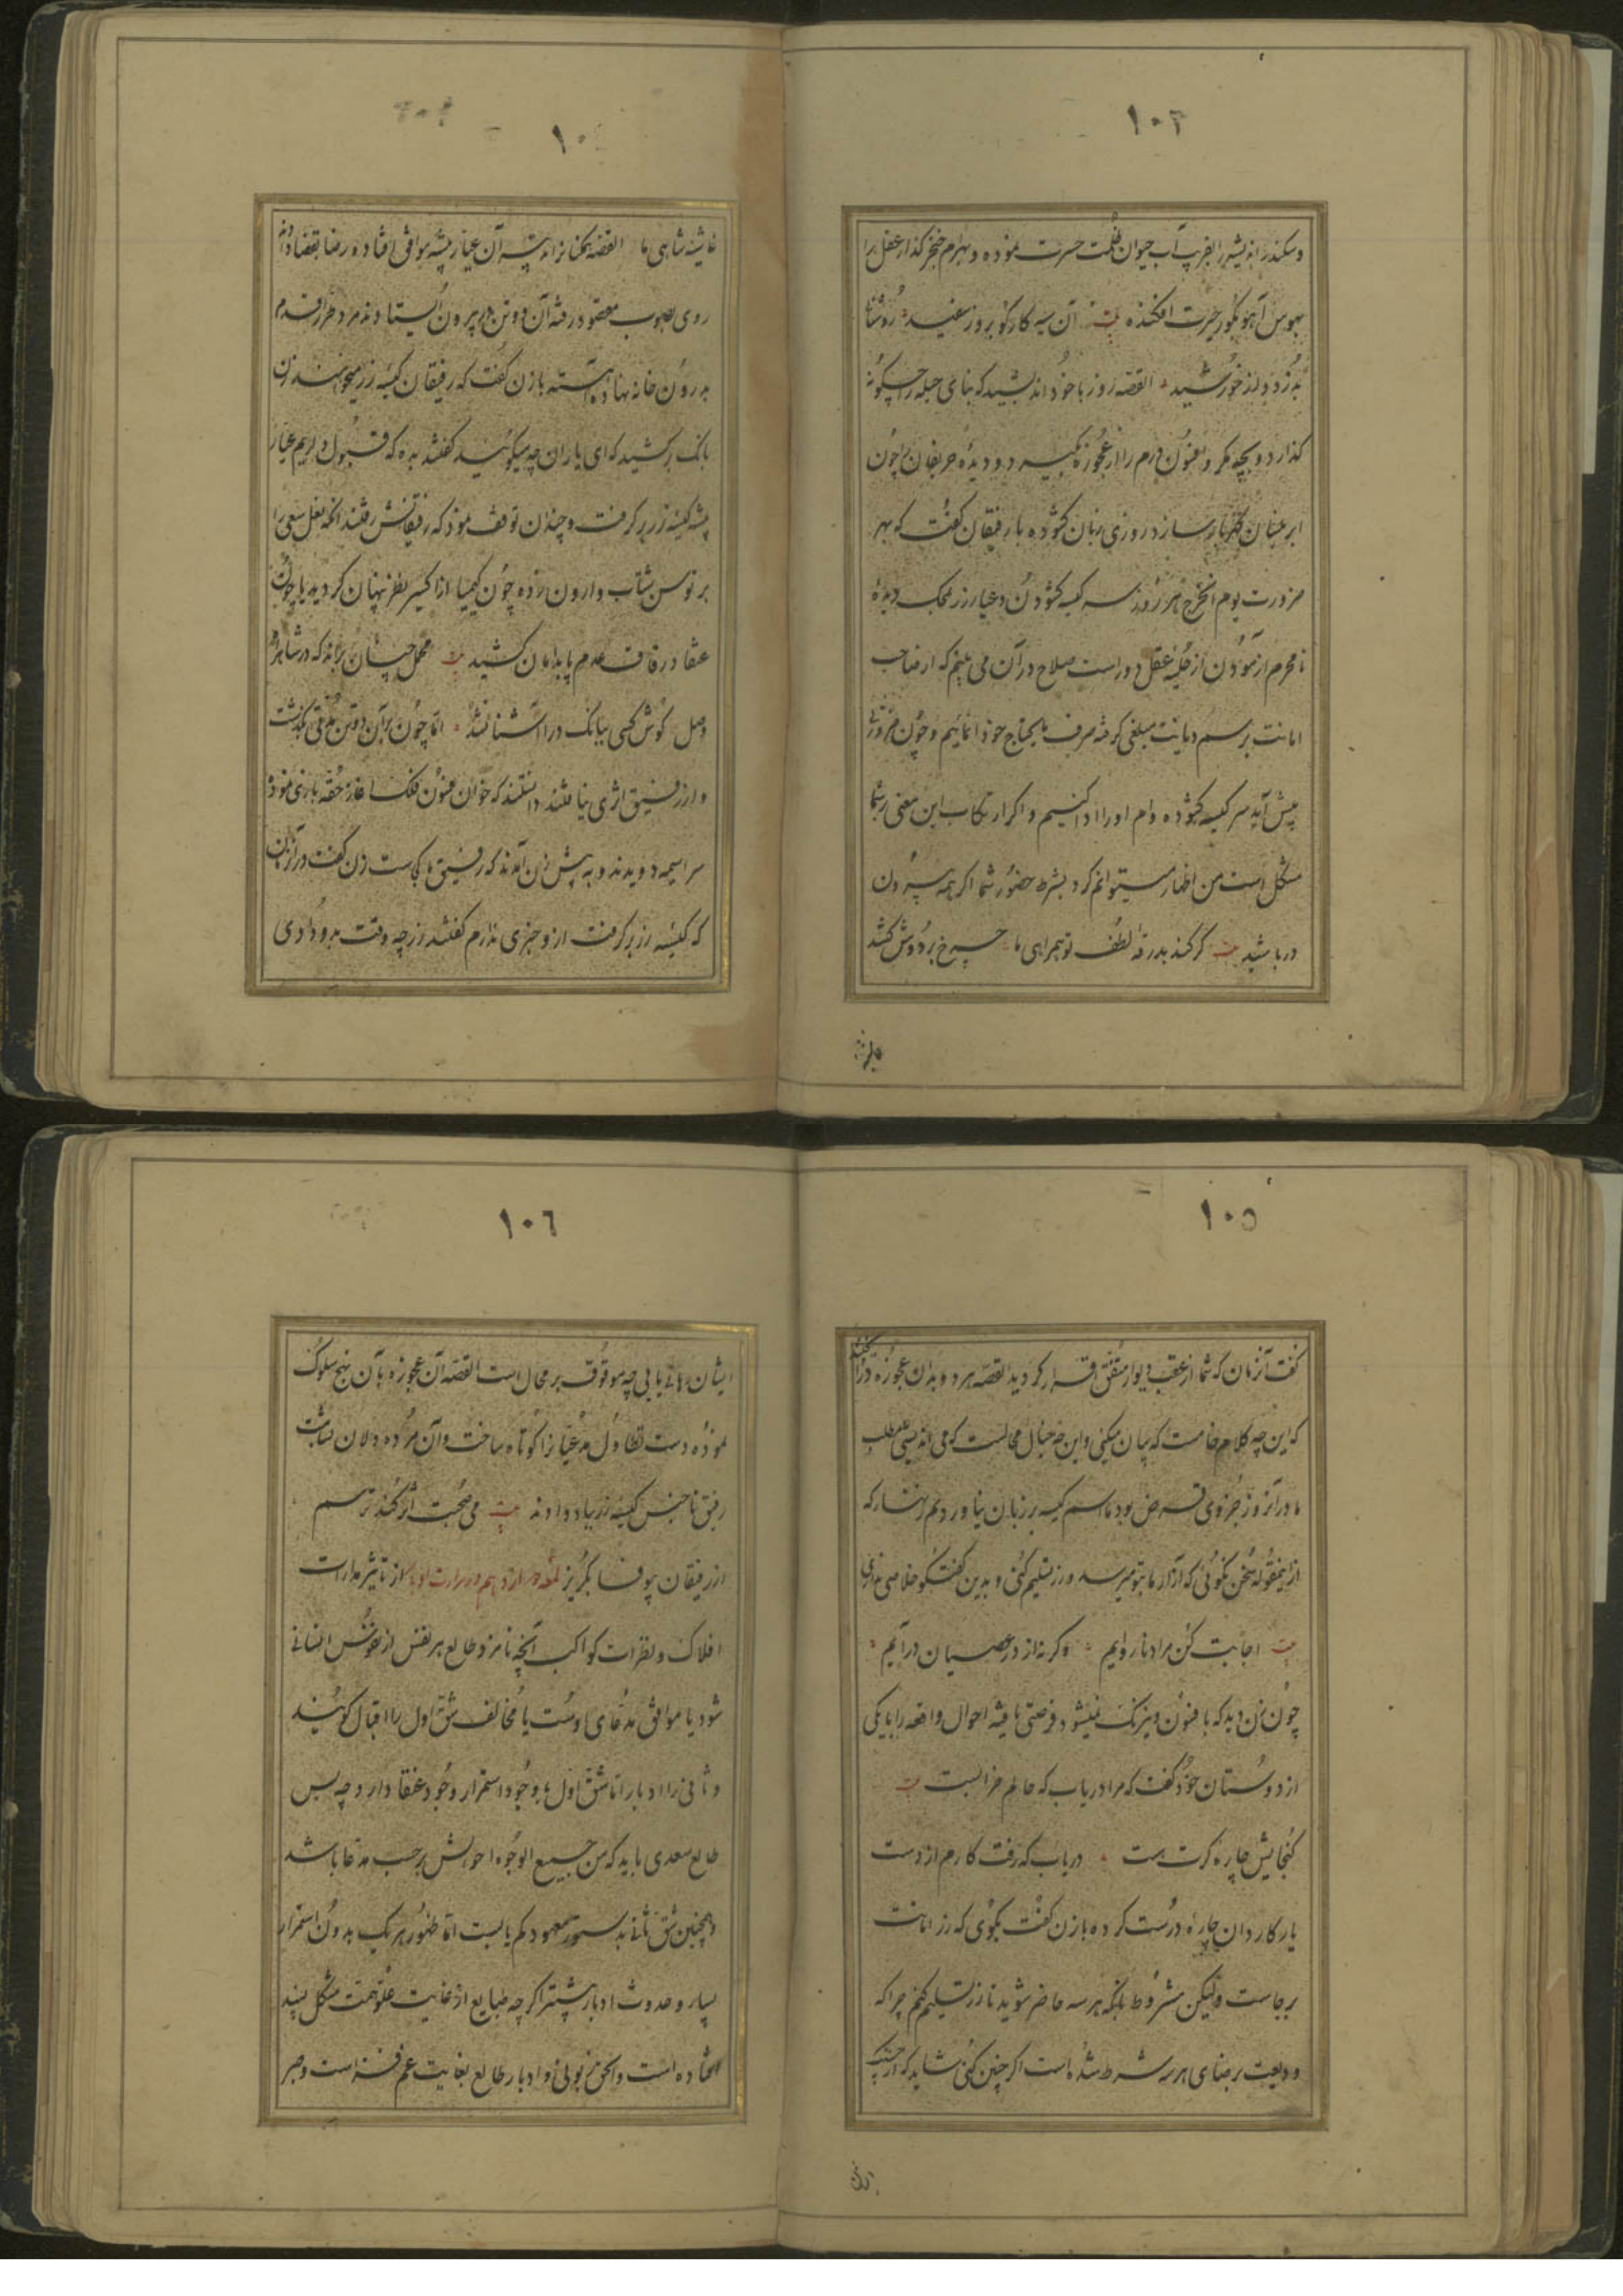 ۱۰۳
و سکندر اندیشه را بفریب آب حیوان ظلمت حسرت نموده و بهرام خنجر گذار عقل را
بهوس آهو بگور حیرت افکنده بیت آن سیه کار کو بروز سفید
بدزدد و از خورشید القصه روز با خود اندیشید که بنای حیله را چگونه
گذارد و بچه مکر و افسون درم را از عجوزه گیرد و دیده حریفان را چون
ابر نیسان گهربار سازد روزی زبان گشوده با رفیقان گفت که بهر
ضرورت یوم الخرج هر روزه سر کیسه گشودن و عیار زر بمحک دیدهٔ
نامحرم آزمودن از حلیه عقل دور است صلاح در آن می بینم که از صاحب
امانت برسم دیانت مبلغی گرفته صرف مایحتاج خود نمائیم و چون ضرورت
پیش آید سر کیسه گشوده وام او را ادا کنیم و اگر ارتکاب این معنی بر شما
مشکل است من اظهار میتوانم کرد بشرط حضور شما اگر همه بیرون
در باشید بیت گر کند بدرقهٔ لطف تو همراهی ما چرخ بر دوش کشد
۱۰
غاشیهٔ شاهی ما القصه همکنانرا اندیشه آن عیار پیشه موافق افتاده رضا بقضا داده
روی بصوب مقصود رفته آن دو تن در بیرون ایستادند مرد طرار قدم
بدرون خانه نهاده آهسته با زن گفت که رفیقان کیسه زر میخواهند زن
بانگ برکشید که ای یاران چه میگوئید گفتند بده که قبول داریم عیار
پیشه کیسه زر برگرفت و چندان توقف نمود که رفیقانش رفتند آنگه نعل سعی را
بر توسن شتاب وارون زده چون کیمیا از اکسیر نظر پنهان گردید یا چون
عنقا در قاف عدم پا بدامان کشید بیت محمل چنان براند که در شاهراه
وصل گوش کسی ببانگ درا آشنا نشد اما چون بر آن دو تن مدتی بگذشت
و از رفیق اثری نیافتند دانستند که خوان فسون فلک آغاز حقه بازی نموده
سراسیمه دویدند و به پیش زن آمدند که رفیق ما کجاست زن گفت در آنزمان
که کیسه زر برگرفت ازو خبری ندارم گفتند زر چه وقت بدو دادی
۱۰۵
گفت آنزمان که شما از عقب دیوار متفق اقرار کردید القصه هر دو بدان عجوزه گفتند
که این چه کلام خامست که بیان میکنی و این چه خیال محالیست که می اندیشی مطلب
ما در آنروز جزوی قرض بود ما اسم کیسه بر زبان نیاوردیم زنهار که
ازینمقوله سخن نگوئی که آزار ما بتو میرسد و زر تسلیم کنی و بدین گفتگو خلاصی نداری
بیت اجابت کن مراد ما روایم و گرنه از در عصیان درآییم
چون زن دید که با فسون و نیرنگ نمیشود فرصتی یافته احوال واقعه را با یکی
از دوستان خود گفت که مرا دریاب که حالم خرابست بیت
گنجایش چاره گرت هست دریاب که رفت کارم از دست
یار کاردان چاره درست کرده با زن گفت بگوی که زر امانت
برجاست ولیکن مشروط بآنکه هر سه حاضر شوید تا زر تسلیم کنم چرا که
ودیعت برضای هر سه شرط شده است اگر چنین کنی شاید که از چنگ
۱۰۶
ایشان رهائی یابی چه موقوف بر محال است القصه آن عجوزه بآن نهج سلوک
نموده دست تطاول مدعیان را کوتاه ساخت و آن مرده دلان بشامت
رفیق ناجنس کیسه زر بیاد دادند بیت می صحبت اثر کند ترسم
از رفیقان بیوفا بگریز از تاثیر مدارات
افلاک و نظرات کواکب آنچه نامزد طالع هر نفس از نفوس انسانی
شود یا موافق مدعای اوست یا مخالف شق اول را اقبال گویند
و ثانی را ادبار اما شق اول با وجود استمرار وجود عنقا دارد چه بس
طالع سعدی باید که من جمیع الوجوه احوالش برحسب مدعا باشد
و همچنین شق ثانی بدستور معهود کم یابست اما ظهور هر یک بدون استمرار
بسیار و حدوث ادبار بیشتر اگر چه طبایع از غایت علو همت مشکل پسند
افتاده است و الحق زبونی و ادبار طالع بغایت غم فزا است و صبر